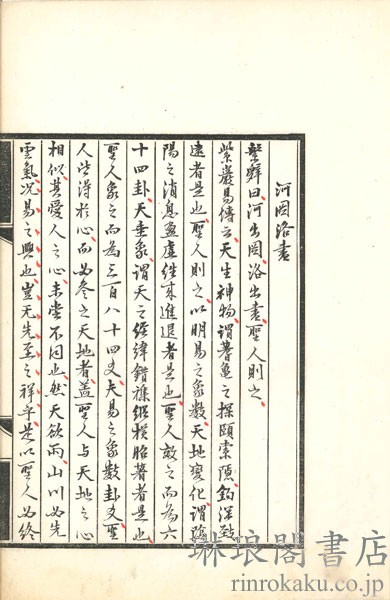 河图洛書
繫辭曰河出図洛出書聖人則之
紫巖易傳云天生神物謂蓍龜之探賾索隱鈎深致
遠者是也聖人則之以明易之象數天地變化謂陰
陽之消息盈虛往来進退者是也聖人效之而為六
十四卦天垂象謂天之經緯錯襍縱横昭著者是也
聖人象之而為三百八十四爻夫易之象數卦爻聖
人皆得於心而必叅之天地者蓋聖人与天地之心
相似其愛人之心未嘗不同也然天欲雨山川必先
雲氣况易之興也豈无先至之祥乎是以聖人必終
琳琅閣書店
rinrokaku.co.jp